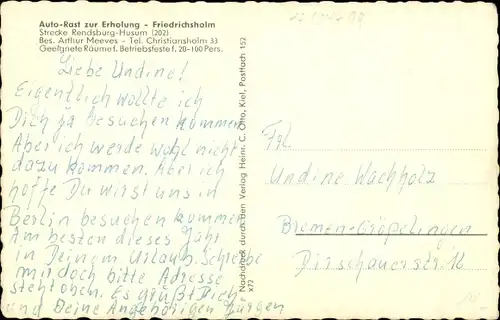 Auto-Rast zur Erholung - Friedrichsholm
Strecke Rendsburg-Husum (202)
Bes. Arthur Meeves - Tel. Christiansholm 33
Geeignete Räume f. Betriebsfeste f. 20-100 Pers.
Liebe Undine!
Eigentlich wollte ich
Dich ja besuchen kommen.
Aber ich werde wohl nicht
dazu kommen. Aber ich
hoffe Du wirst uns in
Berlin besuchen kommen
Am besten dieses Jahr
in Deinem Urlaub. Schreibe
mir doch bitte Adresse
steht oben. Es grüßt Dich
und Deine Angehörigen Jürgen
Nachdruck durch den Verlag Heinr. C. Otto, Kiel, Postfach 152
x72
Frl.
Undine Wachholz
Bremen-Gröpelingen
Dirschauerstr. 16